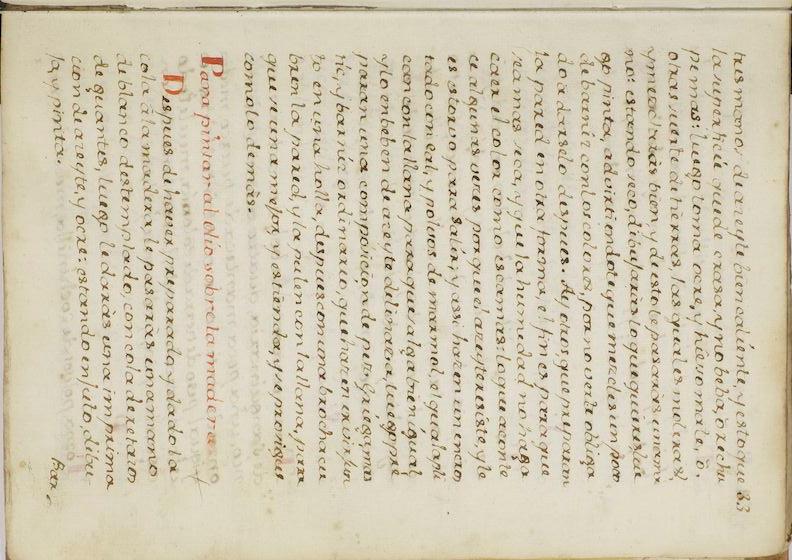 83
tres manos de azeyte bien caliente, y esto que
la superficie quede crasa, y no beba, o rechu
pe mas: luego toma ocre, y hieso mate, ò
otra suerte de tierras, las quales moleràs,
y mezclaràs bien, y de esto le pasaràs una ma
no: estando seco dibujaràs lo que quieres, lue
go pinta, advirtiendote que mezcles un poco
de barniz con los colores, por no verte obliga
do a darselo despues. Ay otros que preparan
la pared en otra forma, el fin es para que
sea mas seca, y que la humedad no haga
caer el color como escamas: lo que aconte
ce algunas veces porque el azeyte resiste, y le
es estorvo para salir; y assi hazen un encos
tado con cal, y polvos de marmol, el qual apla
can con la llana para que salga bien igual,
y lo enceban de azeyte de linaza, luego pre
paran una composicion de pez griega, mas
tic, y barniz ordinario, que hazen ervir jun
to en una holla, despues con una brocha cu
bren la pared, y la pulen con la llana, para
que se una mejor y estienda, y se prosigue
como lo demàs.
Para pintar al olio sobre la madera.
Despues de haver preparado, y dado la
cola à la madera, le pasaràs una mano
de blanco destemplado, con cola de retazos
de guantes, luego le daràs una imprima
cion de azeyte, y ocre: estando enjuto, dibu
ja, y pinta.